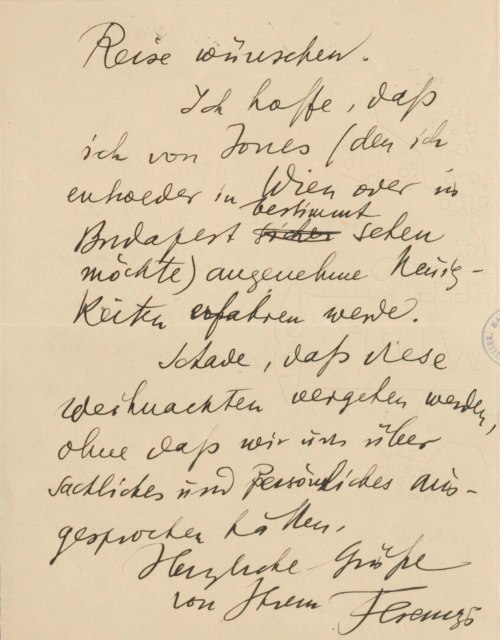 Reise wünschen.
Ich hoffe, daß
ich von Jones (den ich
entweder in Wien oder in
bestimmt
Budapest sicher sehen
möchte) angenehme Neuig-
keiten erfahren werde.
Schade, daß diese
Weihnachten vergehen werden,
ohne daß wir uns über
sachliches und persönliches aus-
gesprochen hätten.
Herzliche Grüße
von Ihrem Ferenczi